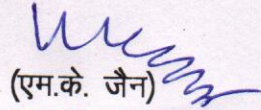 (एम.के. जैन)